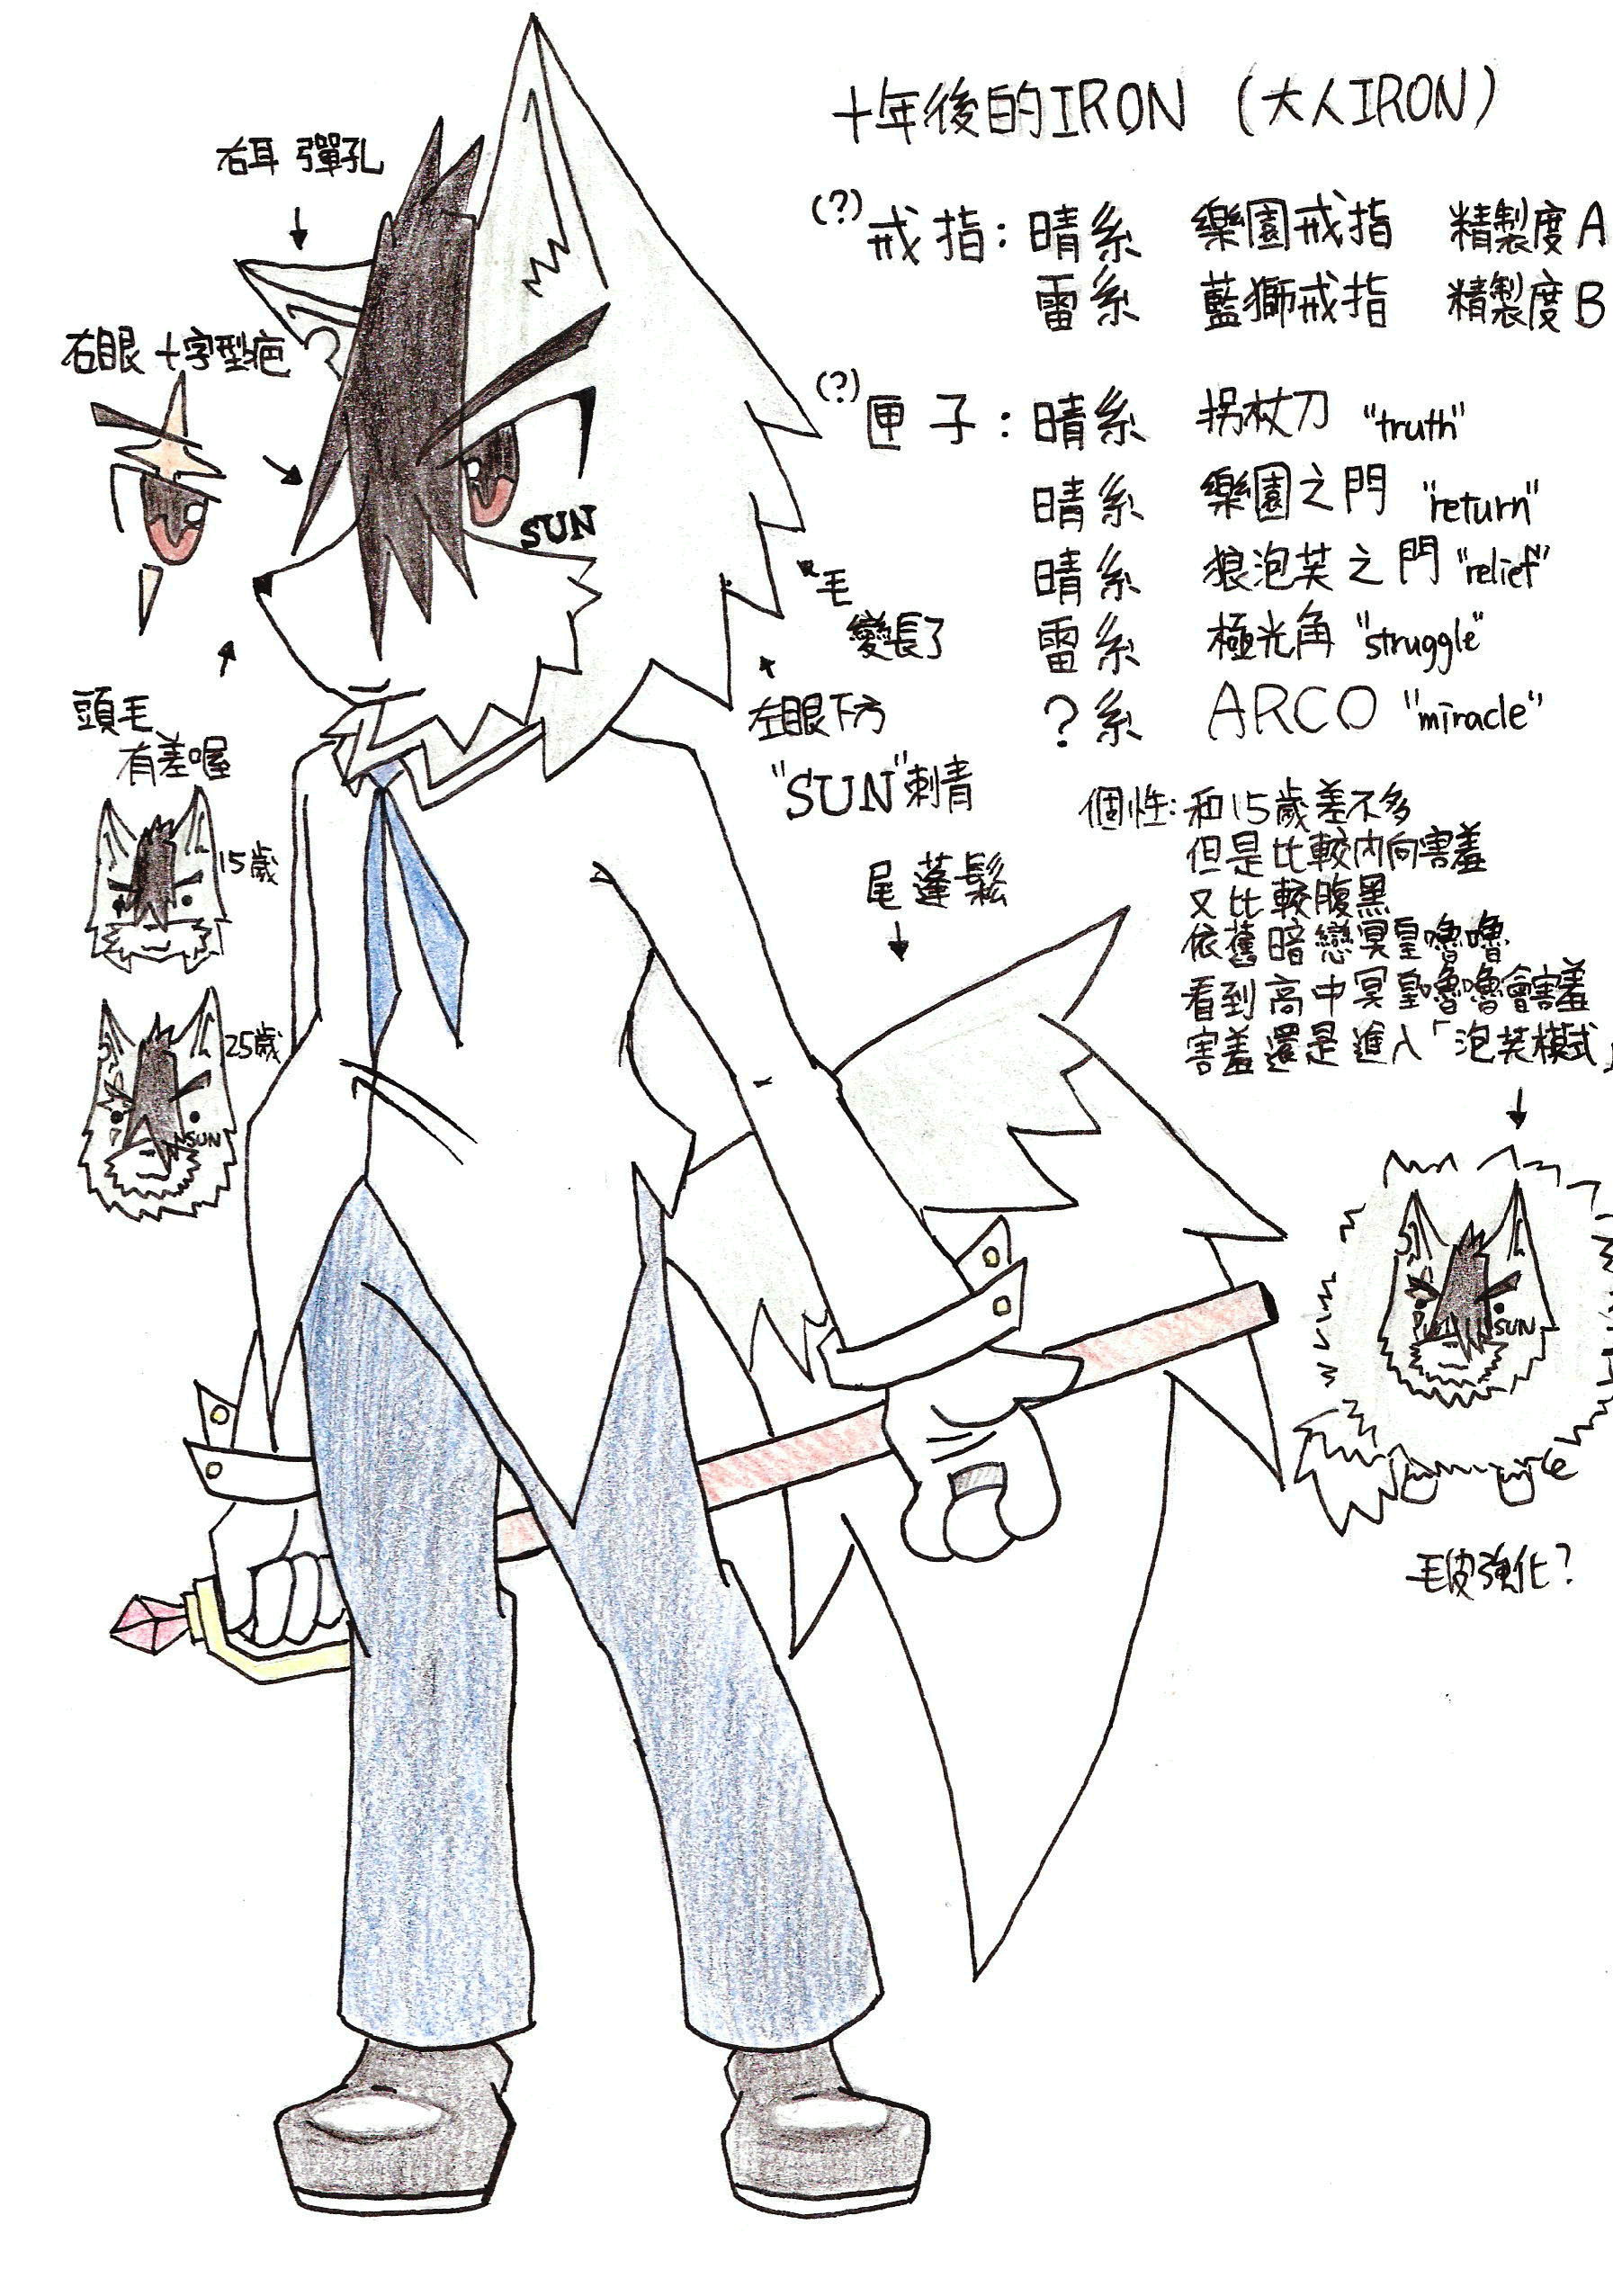 十年後的IRON (大人IRON)
右耳 彈孔
(?)
戒指：晴系 樂園戒指 精製度A
雷系 藍獅戒指 精製度B
右眼 十字型疤
(?)
匣子：晴系 拐杖刀 "truth"
晴系 樂園之門 "return"
晴系 狼泡芙之門 "relief"
雷系 極光角 "struggle"
?系 ARCO "miracle"
SUN
毛
變長了
左眼下方
"SUN"刺青
頭毛
有差喔
15歲
25歲
SUN
尾蓬鬆
個性：和15歲差不多
但是比較內向害羞
又比較腹黑
依舊暗戀冥皇嚕嚕
看到高中冥皇嚕嚕會害羞
害羞還是進入「泡芙模式」
SUN
毛皮強化?